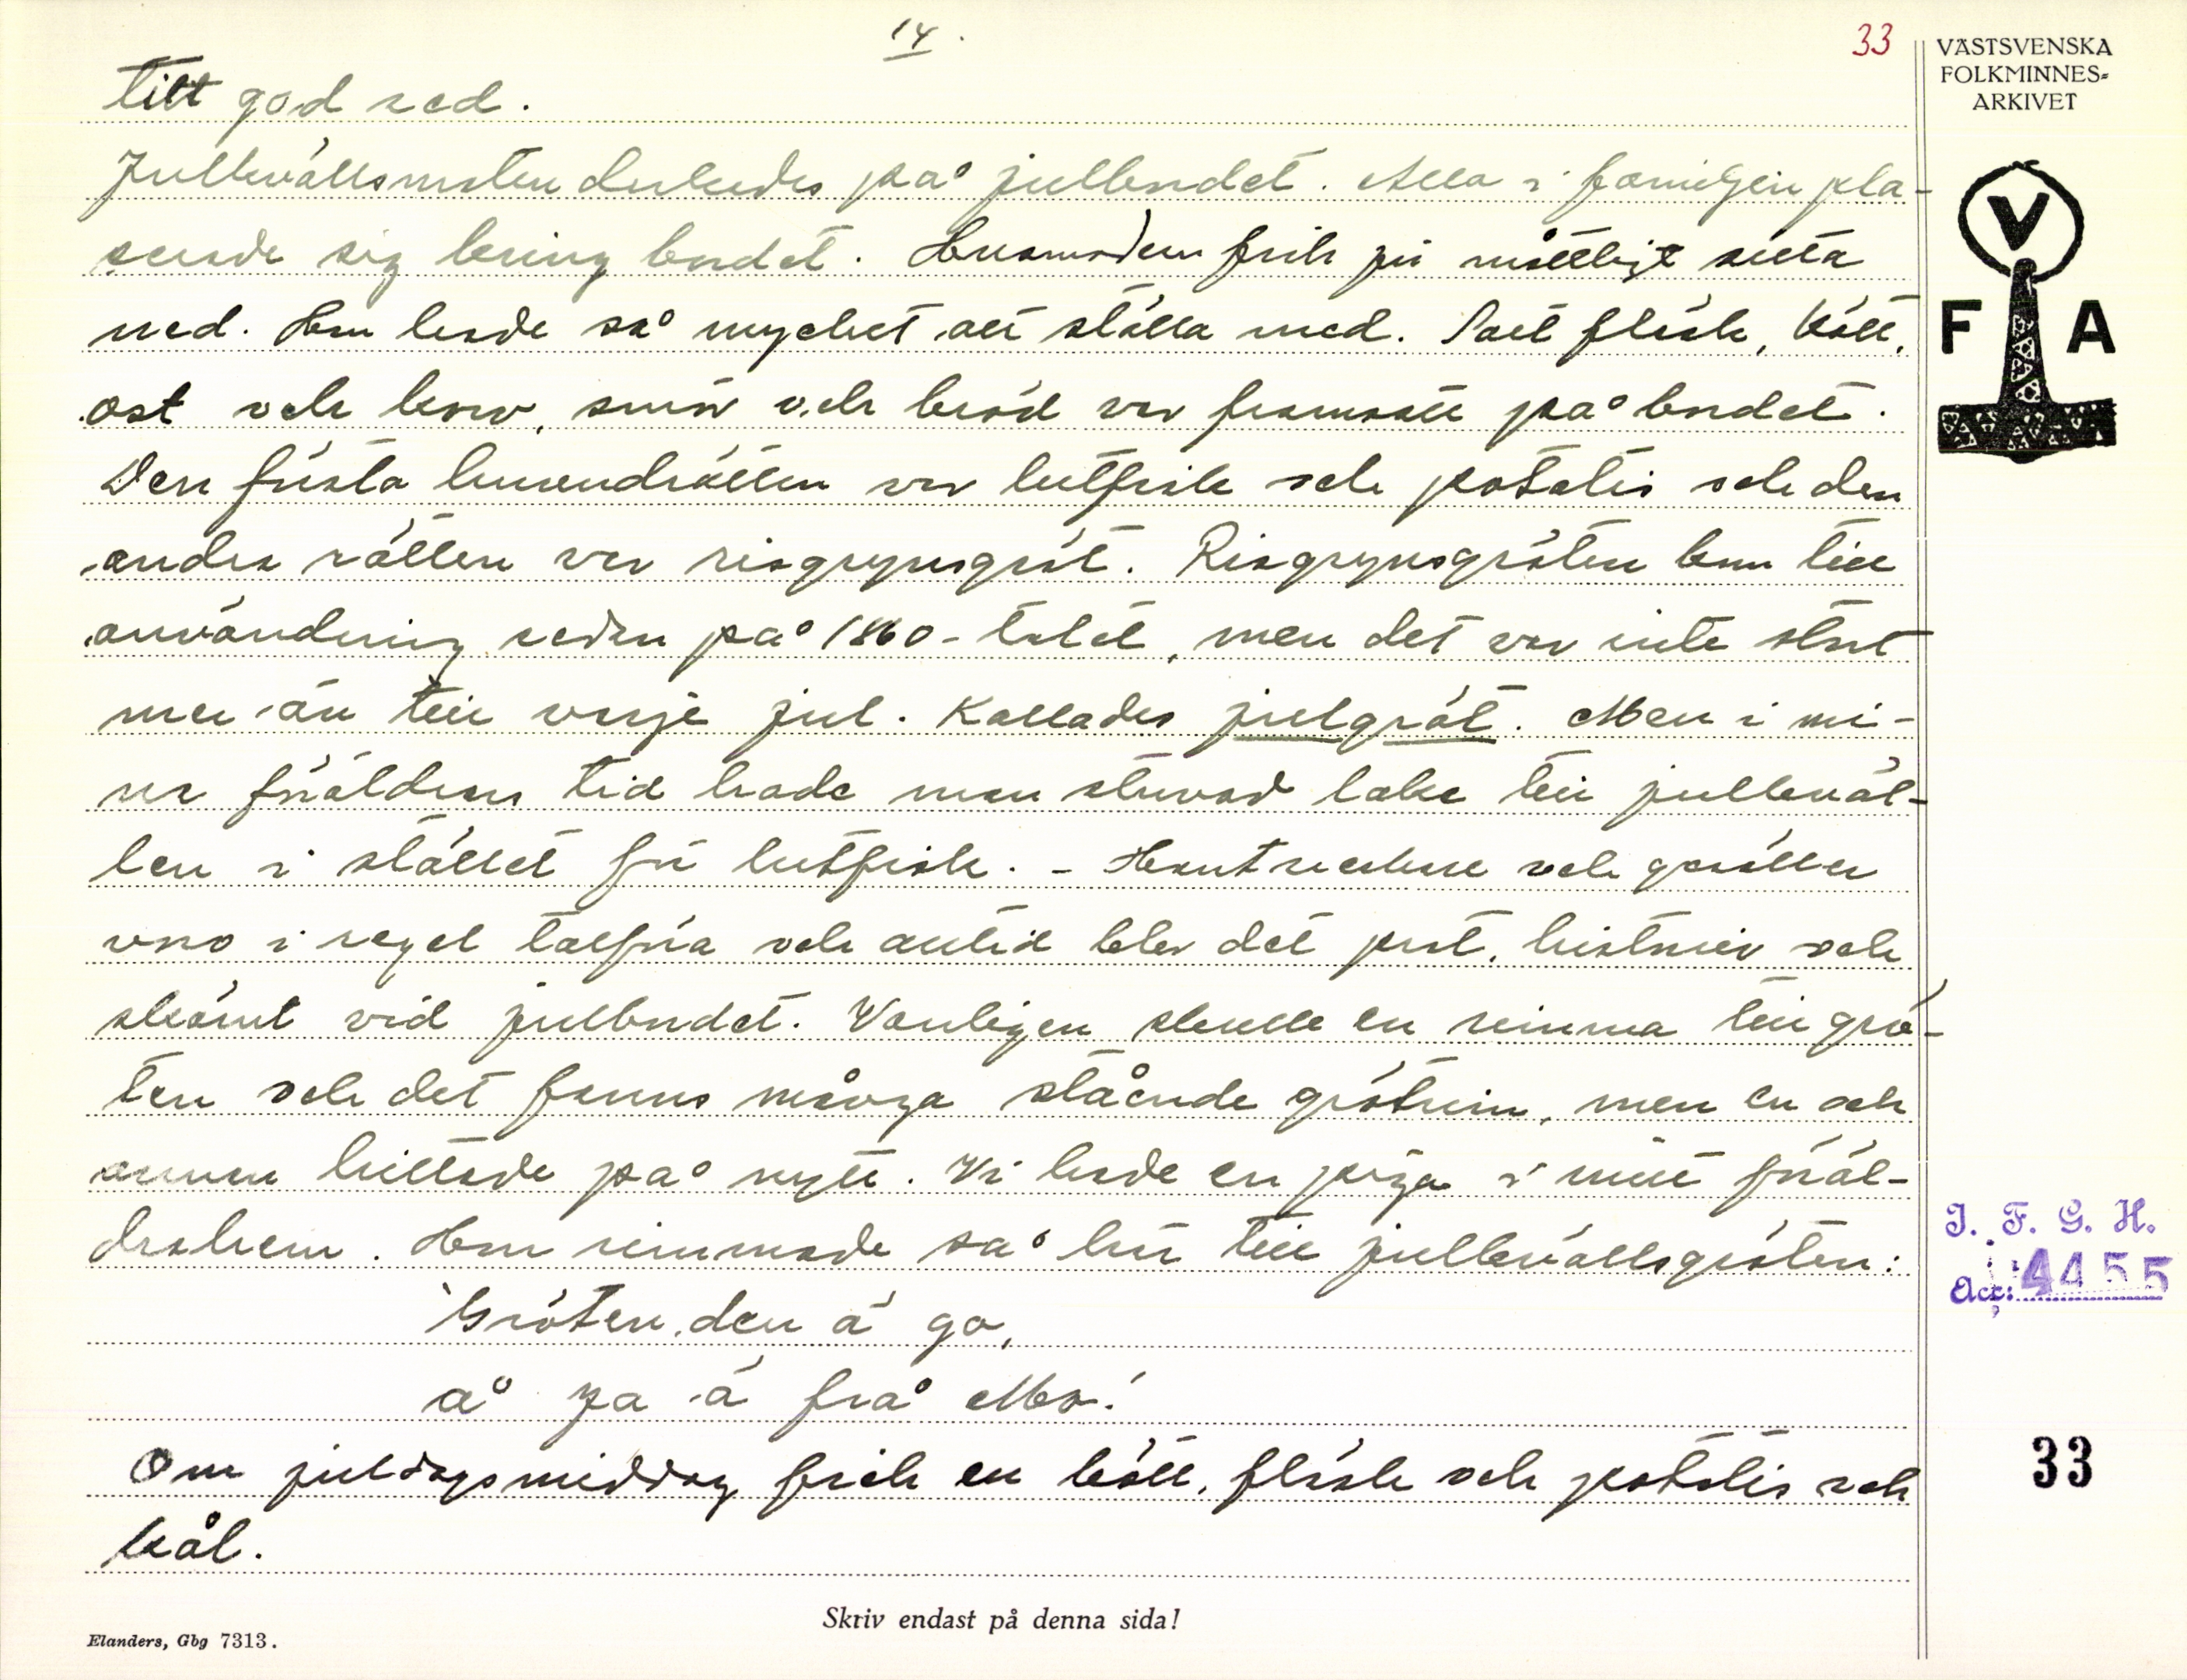 14.
33
VÄSTSVENSKA
FOLKMINNES-
ARKIVET
titt god sed.
Julkvällsmaten dukades på julbordet. Alla i familjen pla-
cerade sig kring bordet. Husmodern fick ju möjligt sitta
ned. Hon hade så mycket att ställa med. Salt fläsk, kött,
ost och korv, smör och bröd var framsatt på bordet.
Den första huvudrätten var lutfisk och potatis och den
andra rätten var risgrynsgröt. Risgrynsgröten kom till
användning redan på 1860-talet, men det var inte stort
mer än till varje jul. Kallades julgröt. Men i mi-
na föräldrars tid hade man stuvad lake till julkväl-
len i stället för lutfisk. - Hantverkare och gesäller
voro i regel talföra och alltid blev det prat, historier och
skämt vid julbordet. Vanligen skulle en rimma till grö-
ten och det fanns många stående grötrim, men en och
annan hittade på nytt. Vi hade en piga i mitt föräl-
drahem. Hon rimmade så här till julkvällsgröten:
"Gröten, den ä go,
å ja ä frå Mo!
Om juldagsmiddag fick en kött, fläsk och potatis och
kål.
V
F A
I. F. G. H.
Acc: 4455
33
Skriv endast på denna sida!
Elanders, Gbg 7313.